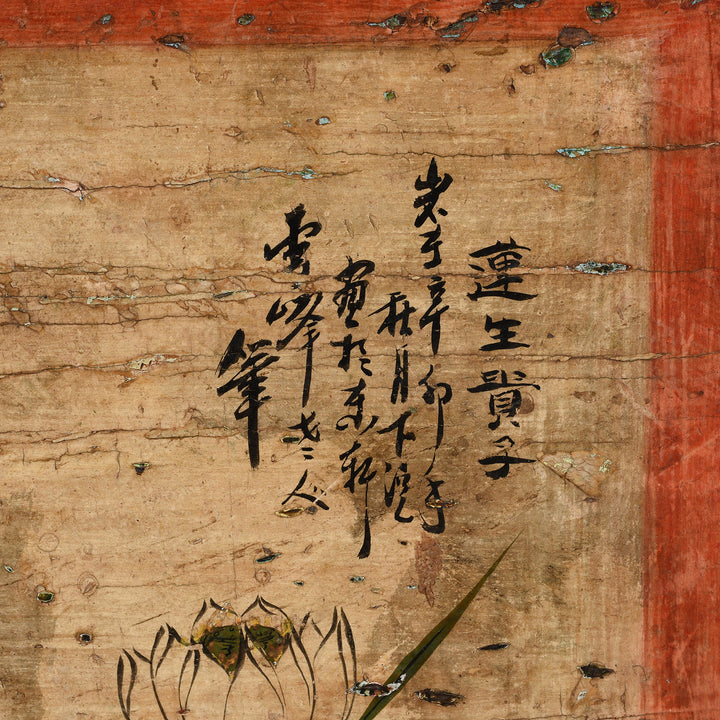 蓮生貴子
歲于辛卯年
秋月下浣
畫於東軒
雲峰老人
筆